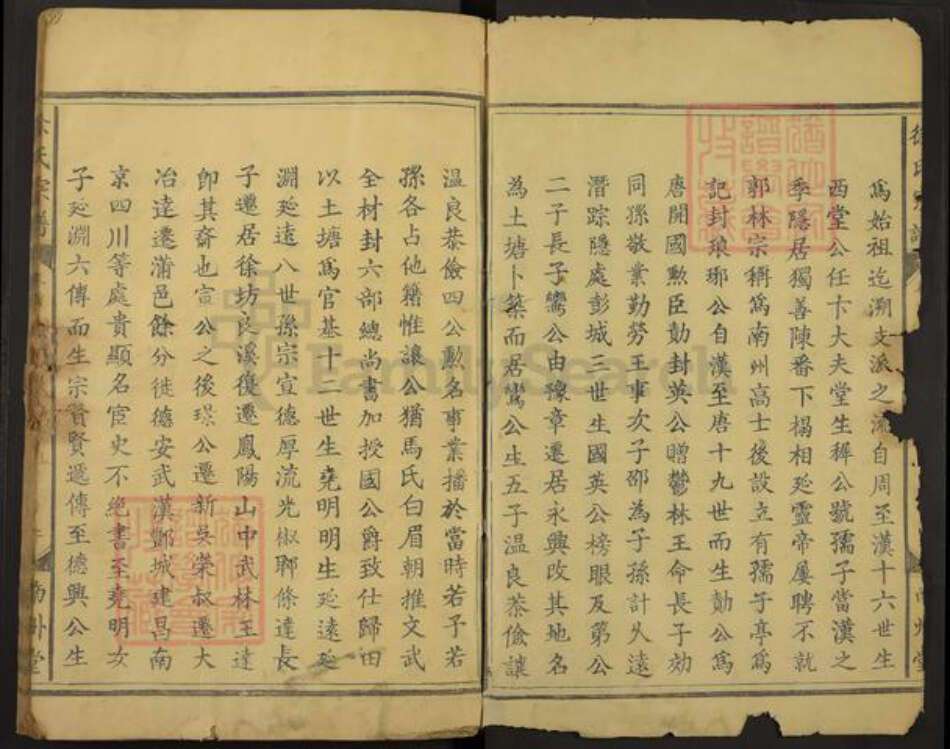 為始祖迄溯支派之流自周至漢十六世生
西堂公任卞大夫堂生穉公號孺子當漢之
季隱居獨善陳番下榻相延靈帝屢聘不就
郭林宗稱為南州高士後設立有孺子亭為
記封琅琊公自漢至唐十九世而生勣公為
唐開國勲臣勣封英公贈鬱林王命長子効
同孫敬業勤勞王事次子邵為子孫計乆遠
潛踪隱處彭城三世生國英公榜眼及第公
二子長子鸞公由豫章遷居永興改其地名
為土塘卜築而居鸞公生五子温良恭儉讓
温良恭儉四公勲名事業播於當時若子若
孫各占他籍惟讓公猶馬氏白眉朝推文武
全材封六部總尚書加授國公爵致仕歸田
以土塘為官基十二世生堯明明生延遠延
淵延遠八世孫宗宣德厚流光椒聊條達長
子遷居徐坊良溪復遷鳳陽山中武林王達
即其裔也宣公之後璟公遷新吳榮叔遷大
冶逹遷蒲邑餘分徙德安武漢鄷城建昌南
京四川等處貴顯名宦史不絶書至堯明次
子延淵六傳而生宗賢賢遞傳至德興公生
徐氏宗譜
南州堂